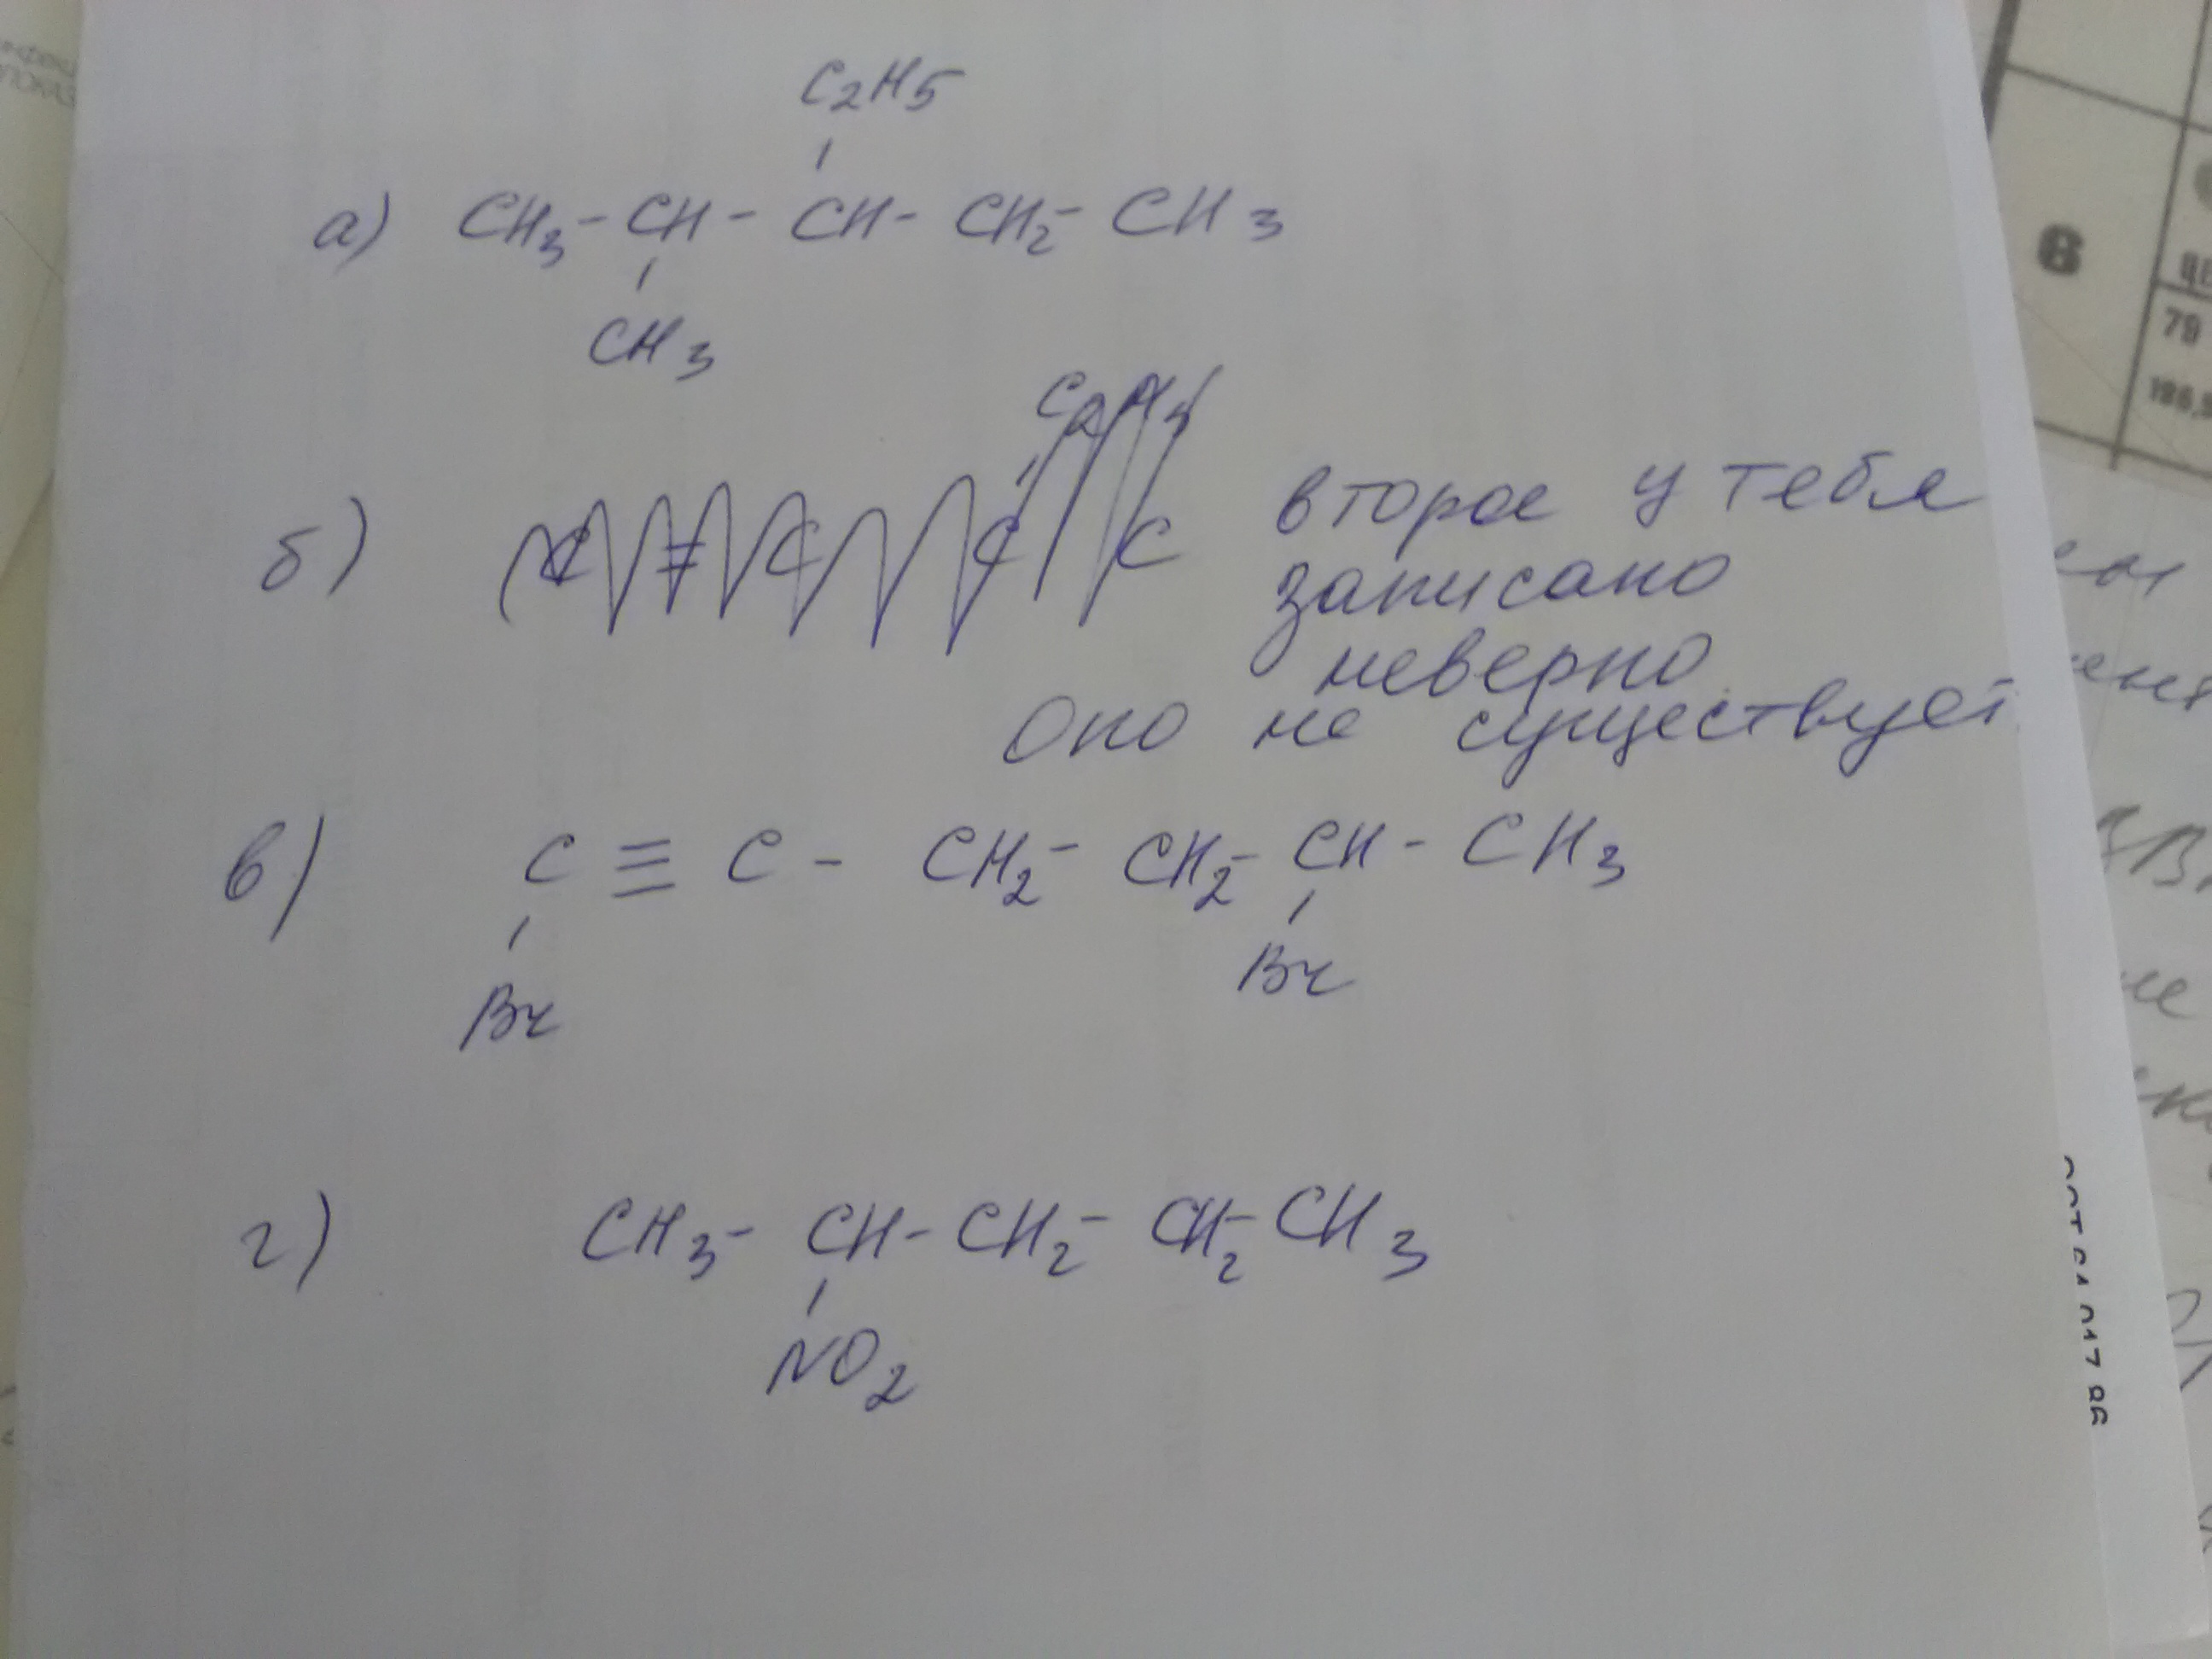 C2H5
а) CH3 - CH - CH - CH2 - CH3
CH3
C2H5
б) C = C C C второе у тебя
записано
неверно
Оно не существует
в) C ≡ C - CH2 - CH2 - CH - CH3
Br Br
г) CH3 - CH - CH2 - CH2 - CH3
NO2
6
79